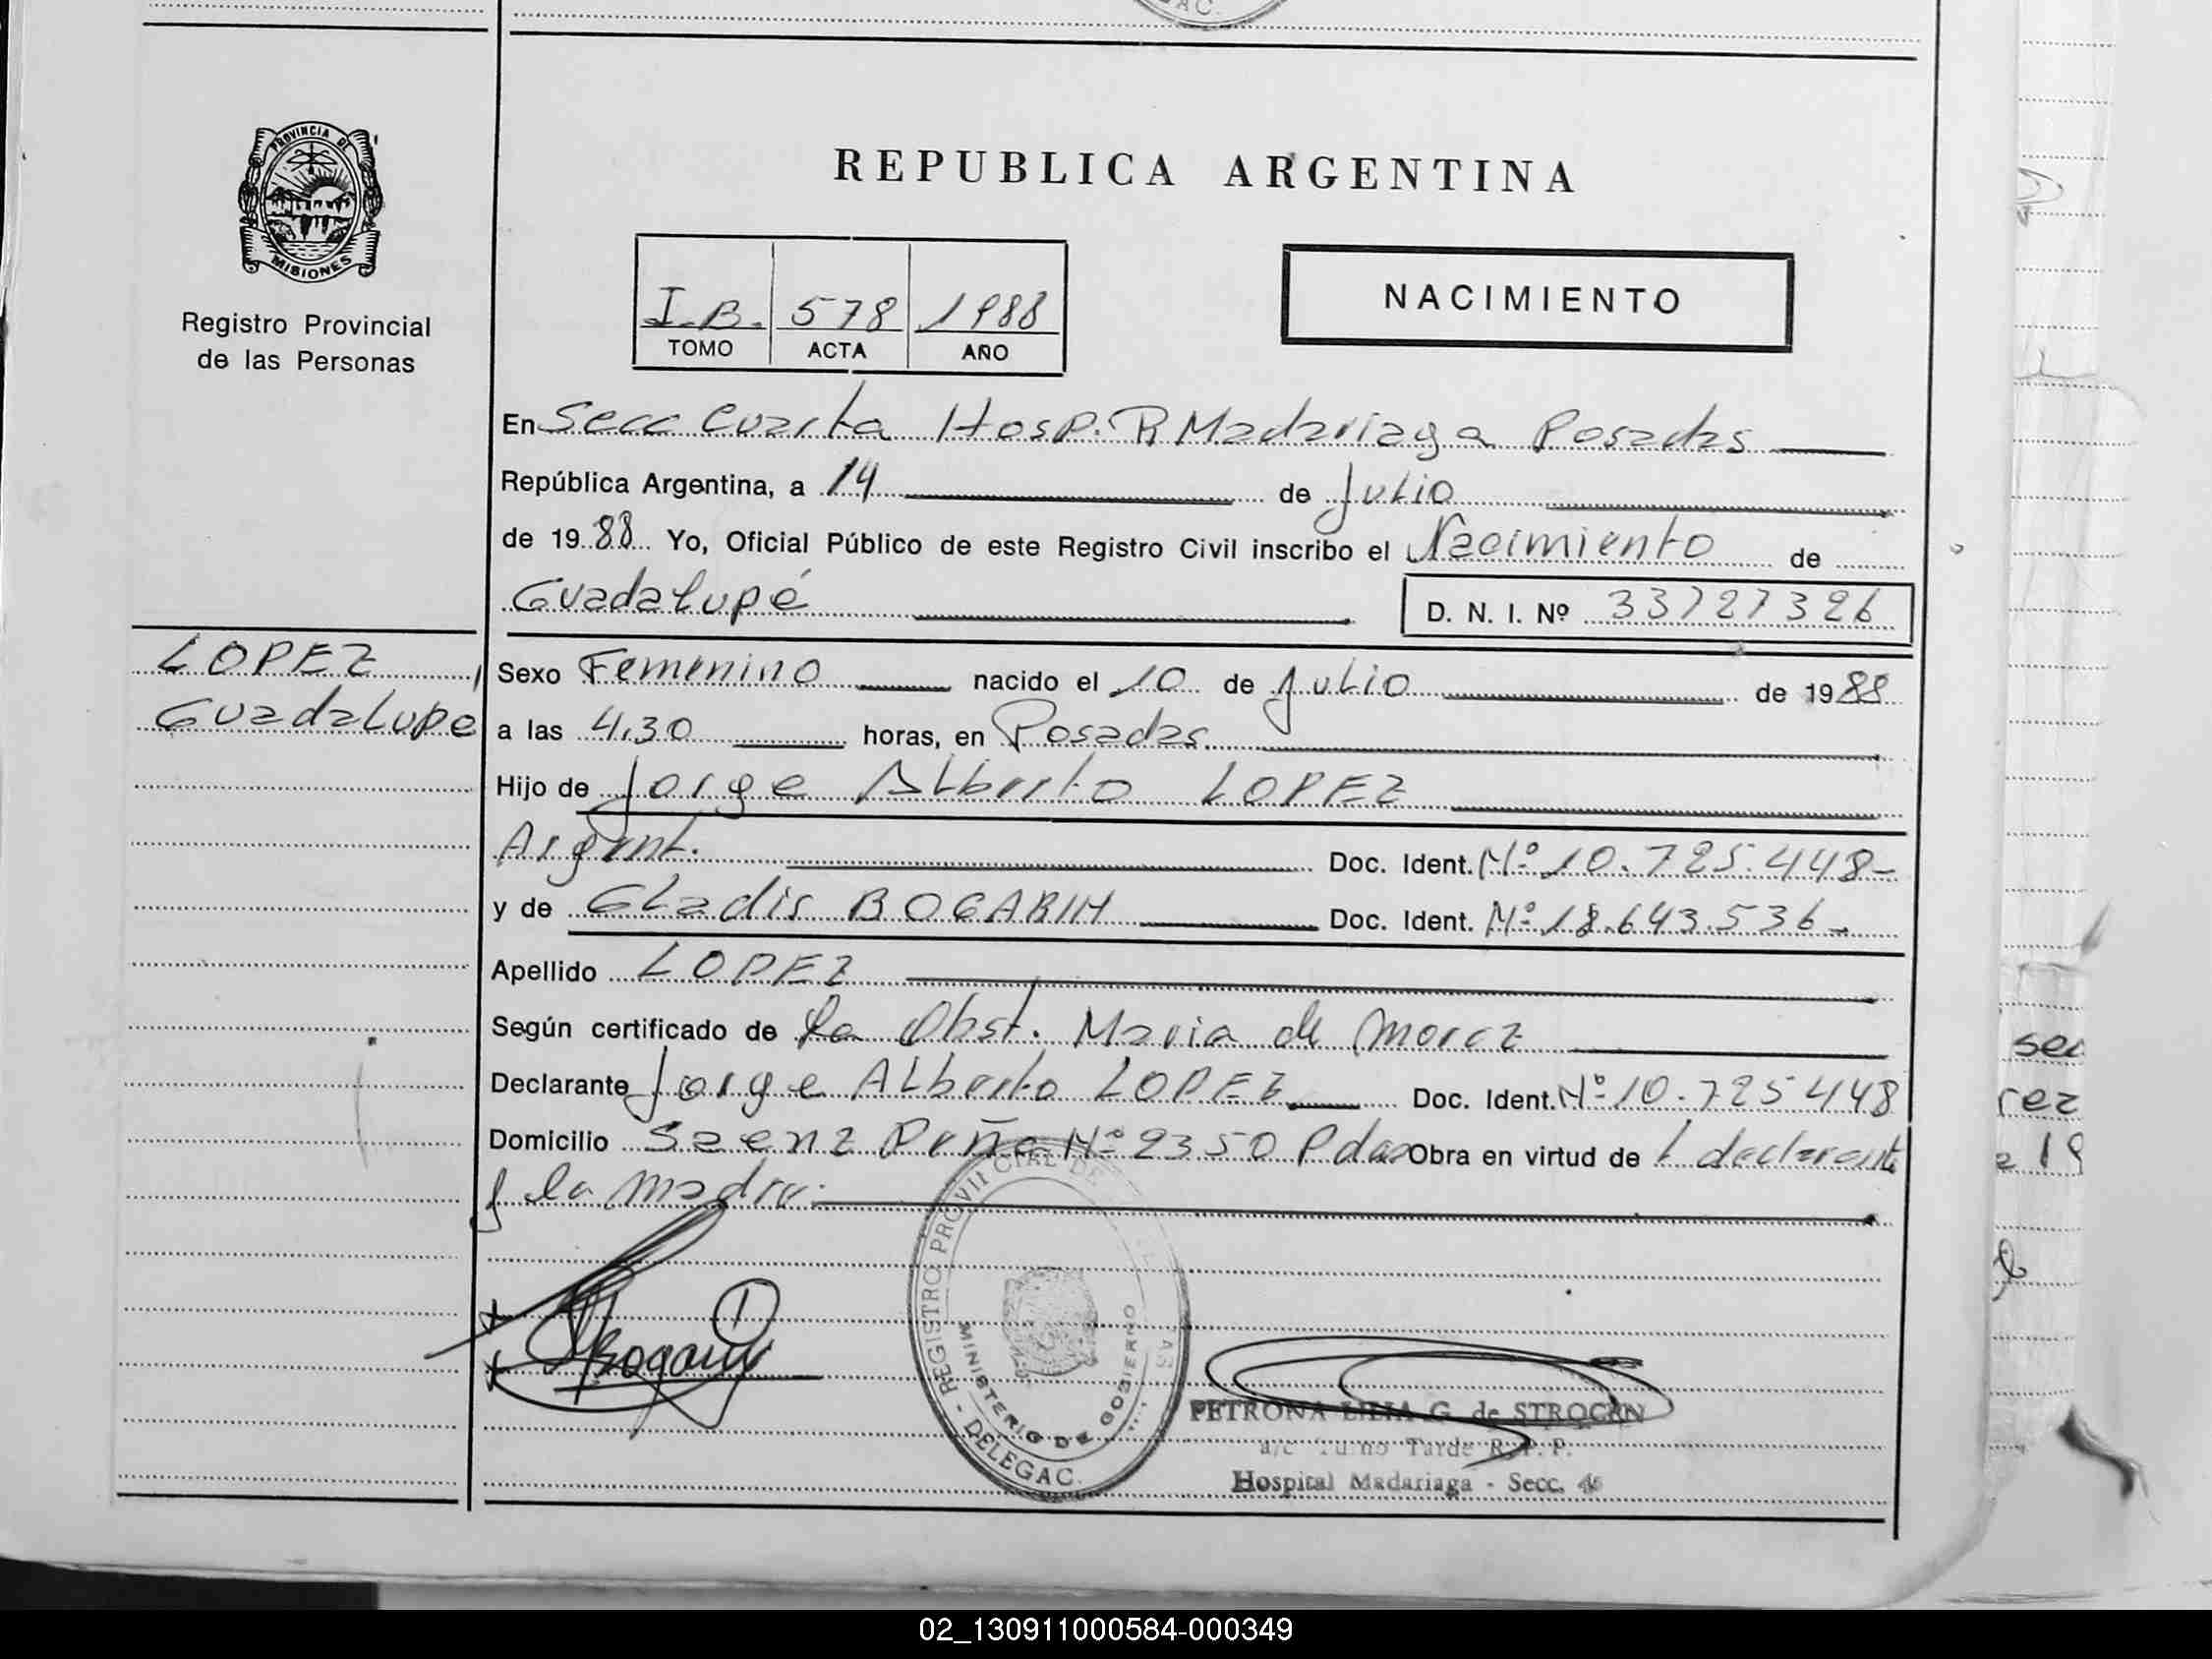 GAC.
PROVINCIA DE
MISIONES
Registro Provincial
de las Personas
REPUBLICA ARGENTINA
I.B. 578 1988
TOMO ACTA AÑO
NACIMIENTO
En Secc Cuarta Hosp. R Madariaga Posadas
República Argentina, a 14 de Julio
de 1988 Yo, Oficial Público de este Registro Civil inscribo el Nacimiento de
Guadalupé D. N. I. Nº 33727326
LOPEZ,
Guadalupe
Sexo Femenino nacido el 10 de Julio de 1988
a las 4,30 horas, en Posadas.
Hijo de Jorge Alberto LOPEZ
Argent. Doc. Ident. Nº 10.725.448-
y de Gladis BOGARIN Doc. Ident. Nº 18.643.536-
Apellido LOPEZ
Según certificado de la Obst. Maria de
Declarante Jorge Alberto LOPEZ Doc. Ident. Nº 10.725448
Domicilio Saenz Peña Nº 2350 Pdas Obra en virtud de L declarante
y la madre.
Bogarin
REGISTRO PROVINCIAL DE LAS
MINISTERIO DE GOBIERNO
- DELEGAC.
PETRONA LILIA G. de STROCEN
a/c Turno Tarde R. P. P.
Hospital Madariaga - Secc. 4ª
rez
02_130911000584-000349